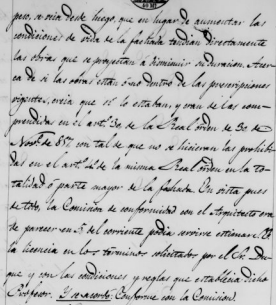 peso, se veia desde luego, que en lugar de aumentar las
condiciones de vida de la fachada tendian directamente
las obras que se proyectan á disminuir su duracion. Acer-
ca de si las obras estan ó no dentro de las prescripciones
vigentes, creia que sí lo estaban, y eran de las com-
prendidas en el artº 3º de la Real órden de 30 de
Novbe de 857 con tal de que no se hicieran las prohibi-
das en el artº 4º de la misma Real órden en la to-
talidad ó parte mayor de la fachada. En vista pues
de todo, la Comision de conformidad con el Arquitecto era
de parecer en 5 del corriente podia servirse estimar V.E.
la licencia en los términos solicitados por el Sr. Du-
que y con las condiciones y reglas que establecia dicho
Profesor. Y se acordó: Conforme con la Comision.